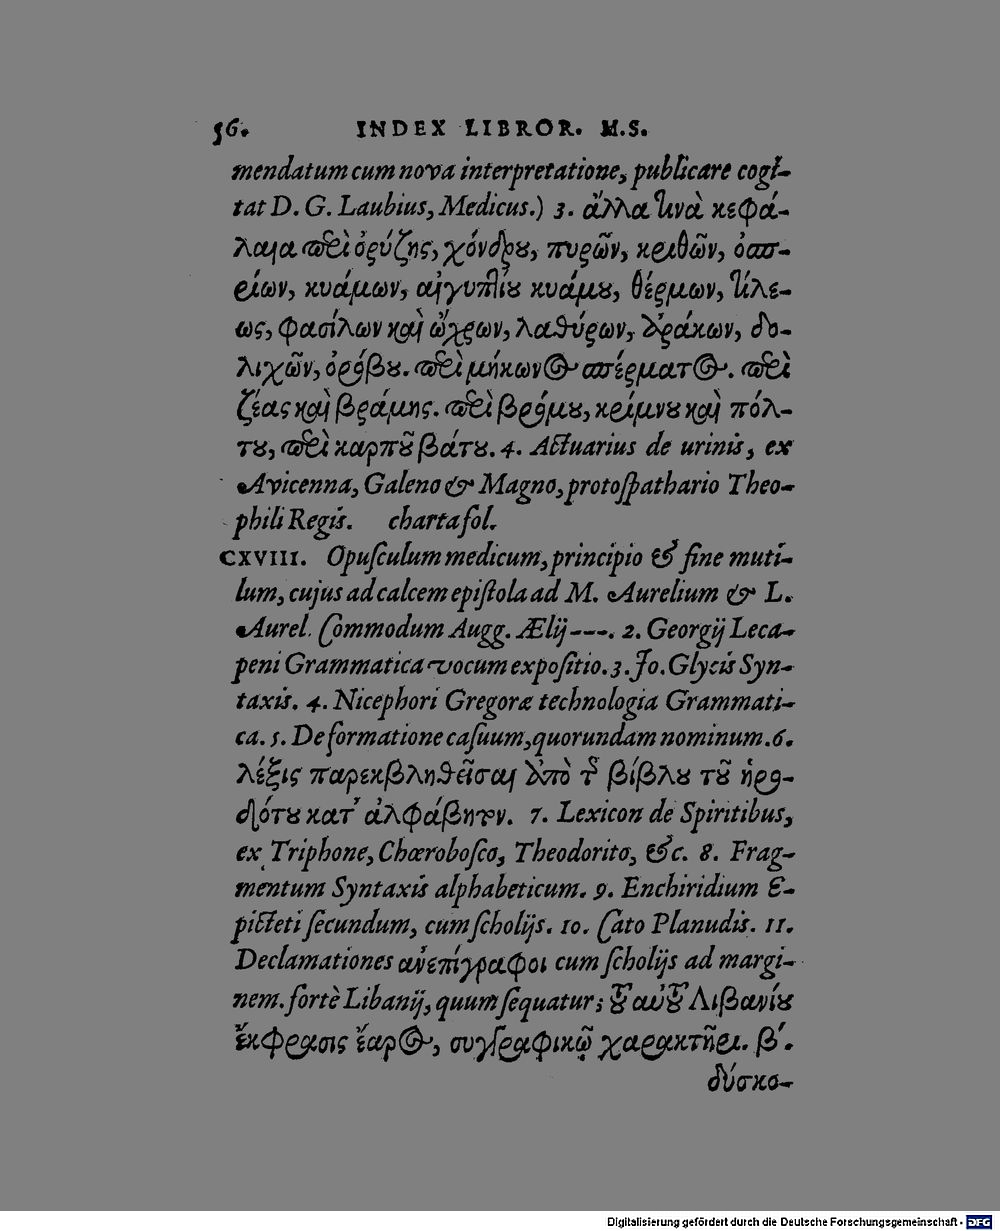 56. INDEX LIBROR. M.S.
mendatum cum nova interpretatione, publicare cogi-
tat D. G. Laubius, Medicus.) 3. ἄλλα τινὰ κεφά-
λαια περὶ ὀρύζης, χόνδρου, πυρῶν, κριθῶν, ὀσπ-
ρίων, κυάμων, αἰγυπτίου κυάμου, θέρμων, τίλε-
ως, φασίλων καὶ ὤχρων, λαθύρων, δράκων, δο-
λιχῶν, ὀρόβου. περὶ μήκωνος σπέρματος. περὶ
ζέας καὶ βράμης. περὶ βρόμου, κρίμνου καὶ πόλ-
του, περὶ καρποῦ βάτου. 4. Actuarius de urinis, ex
Avicenna, Galeno & Magno, protospathario Theo-
phili Regis. charta fol.
CXVIII. Opusculum medicum, principio & fine muti-
lum, cujus ad calcem epistola ad M. Aurelium & L.
Aurel. Commodum Augg. Ælij ---. 2. Georgij Leca-
peni Grammatica vocum expositio. 3. Jo. Glycis Syn-
taxis. 4. Nicephori Gregoræ technologia Grammati-
ca. 5. De formatione casuum, quorundam nominum. 6.
λέξις παρεκβληθεῖσαι ἀπὸ τῆς βίβλου τοῦ ἡρο-
δότου κατ' ἀλφάβητον. 7. Lexicon de Spiritibus,
ex Triphone, Chœrobosco, Theodorito, &c. 8. Frag-
mentum Syntaxis alphabeticum. 9. Enchiridium E-
picteti secundum, cum scholijs. 10. Cato Planudis. 11.
Declamationes ἀνεπίγραφοι cum scholijs ad margi-
nem. fortè Libanij, quum sequatur; τοῦ αὐτοῦ Λιβανίου
ἔκφρασις ἔαρος, συγγραφικῷ χαρακτῆρι. β'.
δύσκο-
Digitalisierung gefördert durch die Deutsche Forschungsgemeinschaft - DFG